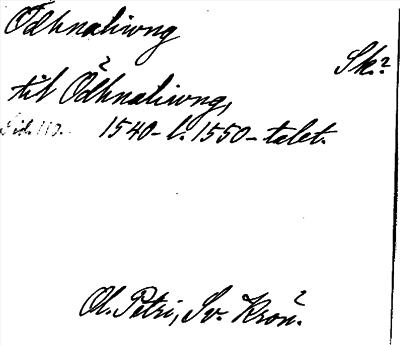 Ödhnaliwng
Sk.?
till Ödhnaliwng,
Sid. 110. 1540- l. 1550-talet.
Ol. Petri, Sv. Krön.